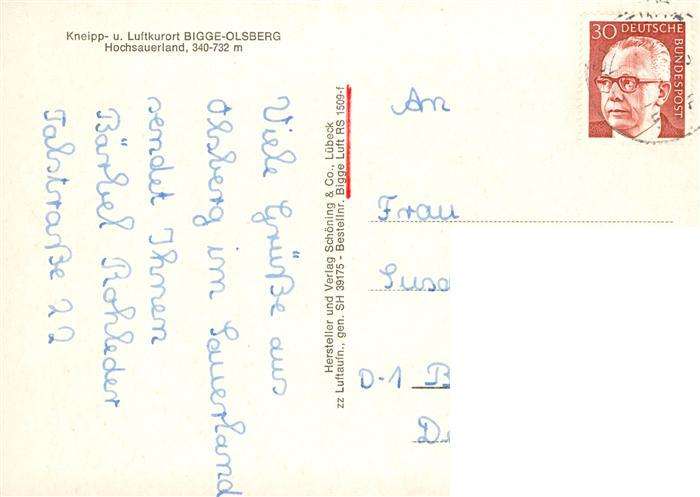 Kneipp- u. Luftkurort BIGGE-OLSBERG
Hochsauerland, 340-732 m
Viele Grüße aus
Olsberg im Sauerland
sendet Ihnen
Bärbel Rohleder
Talstraße 22
Hersteller und Verlag Schöning & Co., Lübeck
zz Luftaufn., gen. SH 39175 - Bestellnr. Bigge Luft RS 1509-f
30 DEUTSCHE BUNDESPOST
An
Frau
D-1 B